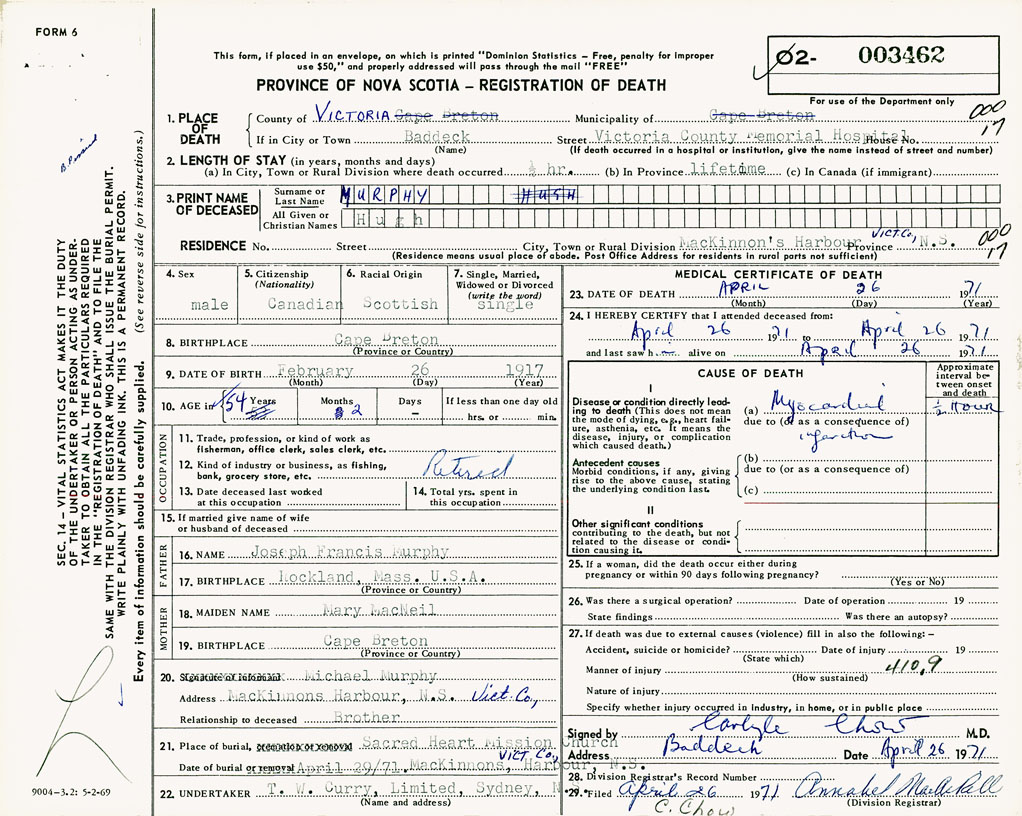 FORM 6
This form, if placed in an envelope, on which is printed "Dominion Statistics – Free, penalty for improper
use $50," and properly addressed will pass through the mail "FREE"
02- 003462
PROVINCE OF NOVA SCOTIA – REGISTRATION OF DEATH
For use of the Department only
000
17
1. PLACE OF DEATH
County of VICTORIA Cape Breton Municipality of Cape Breton
If in City or Town Baddeck Street Victoria County Memorial Hospital House No.
(Name) (If death occurred in a hospital or institution, give the name instead of street and number)
2. LENGTH OF STAY (in years, months and days)
(a) In City, Town or Rural Division where death occurred ½ hr. (b) In Province lifetime (c) In Canada (if immigrant)
3. PRINT NAME OF DECEASED
Surname or Last Name MURPHY HUGH
All Given or Christian Names Hugh
RESIDENCE No. Street City, Town or Rural Division MacKinnon's Harbour Vict. Co, Province N.S.
000
17
(Residence means usual place of abode. Post Office Address for residents in rural parts not sufficient)
4. Sex
male
5. Citizenship
(Nationality)
Canadian
6. Racial Origin
Scottish
7. Single, Married,
Widowed or Divorced
(write the word)
single
8. BIRTHPLACE Cape Breton
(Province or Country)
9. DATE OF BIRTH February 26 1917
(Month) (Day) (Year)
10. AGE in 54 Years Months 2 Days – If less than one day old
hrs. or min.
OCCUPATION
11. Trade, profession, or kind of work as
fisherman, office clerk, sales clerk, etc.
12. Kind of industry or business, as fishing,
bank, grocery store, etc. Retired
13. Date deceased last worked
at this occupation
14. Total yrs. spent in
this occupation
15. If married give name of wife
or husband of deceased
FATHER
16. NAME Joseph Francis Murphy
17. BIRTHPLACE Lockland, Mass. U.S.A.
(Province or Country)
MOTHER
18. MAIDEN NAME Mary MacNeil
19. BIRTHPLACE Cape Breton
(Province or Country)
20. Signature of informant Michael Murphy
Address MacKinnons Harbour, N.S. Vict. Co,
Relationship to deceased Brother
21. Place of burial, cremation or removal Sacred Heart Mission Church
VICT Co,
Date of burial or removal April 29/71 MacKinnons, Harbour, N.S.
22. UNDERTAKER T. W. Curry, Limited, Sydney, N.
(Name and address)
MEDICAL CERTIFICATE OF DEATH
23. DATE OF DEATH APRIL 26 1971
(Month) (Day) (Year)
24. I HEREBY CERTIFY that I attended deceased from:
April 26 1971 to April 26 1971
and last saw h alive on April 26 1971
CAUSE OF DEATH
Approximate
interval be-
tween onset
and death
I
Disease or condition directly lead-
ing to death (This does not mean
the mode of dying, e.g., heart fail-
ure, asthenia, etc. It means the
disease, injury, or complication
which caused death.)
(a) Myocardial
due to (or as a consequence of)
infarction
½ Hour
Antecedent causes
Morbid conditions, if any, giving
rise to the above cause, stating
the underlying condition last.
(b)
due to (or as a consequence of)
(c)
II
Other significant conditions
contributing to the death, but not
related to the disease or condi-
tion causing it.
25. If a woman, did the death occur either during
pregnancy or within 90 days following pregnancy?
(Yes or No)
26. Was there a surgical operation? Date of operation 19
State findings Was there an autopsy?
27. If death was due to external causes (violence) fill in also the following: –
Accident, suicide or homicide? Date of injury 19
(State which)
Manner of injury 410,9
(How sustained)
Nature of injury
Specify whether injury occurred in industry, in home, or in public place
Signed by Carlyle Chow M.D.
Address Baddeck Date April 26 1971
28. Division Registrar's Record Number
29. Filed April 26 1971 Annabel
C. Chow (Division Registrar)
SEC. 14 – VITAL STATISTICS ACT MAKES IT THE DUTY
OF THE UNDERTAKER OR PERSON ACTING AS UNDER-
TAKER TO OBTAIN ALL THE PARTICULARS REQUIRED
IN THE "REGISTRATION OF DEATH" AND TO FILE THE
SAME WITH THE DIVISION REGISTRAR WHO SHALL ISSUE THE BURIAL PERMIT.
WRITE PLAINLY WITH UNFADING INK. THIS IS A PERMANENT RECORD.
Every item of information should be carefully supplied. (See reverse side for instructions.)
9004–3.2: 5-2-69